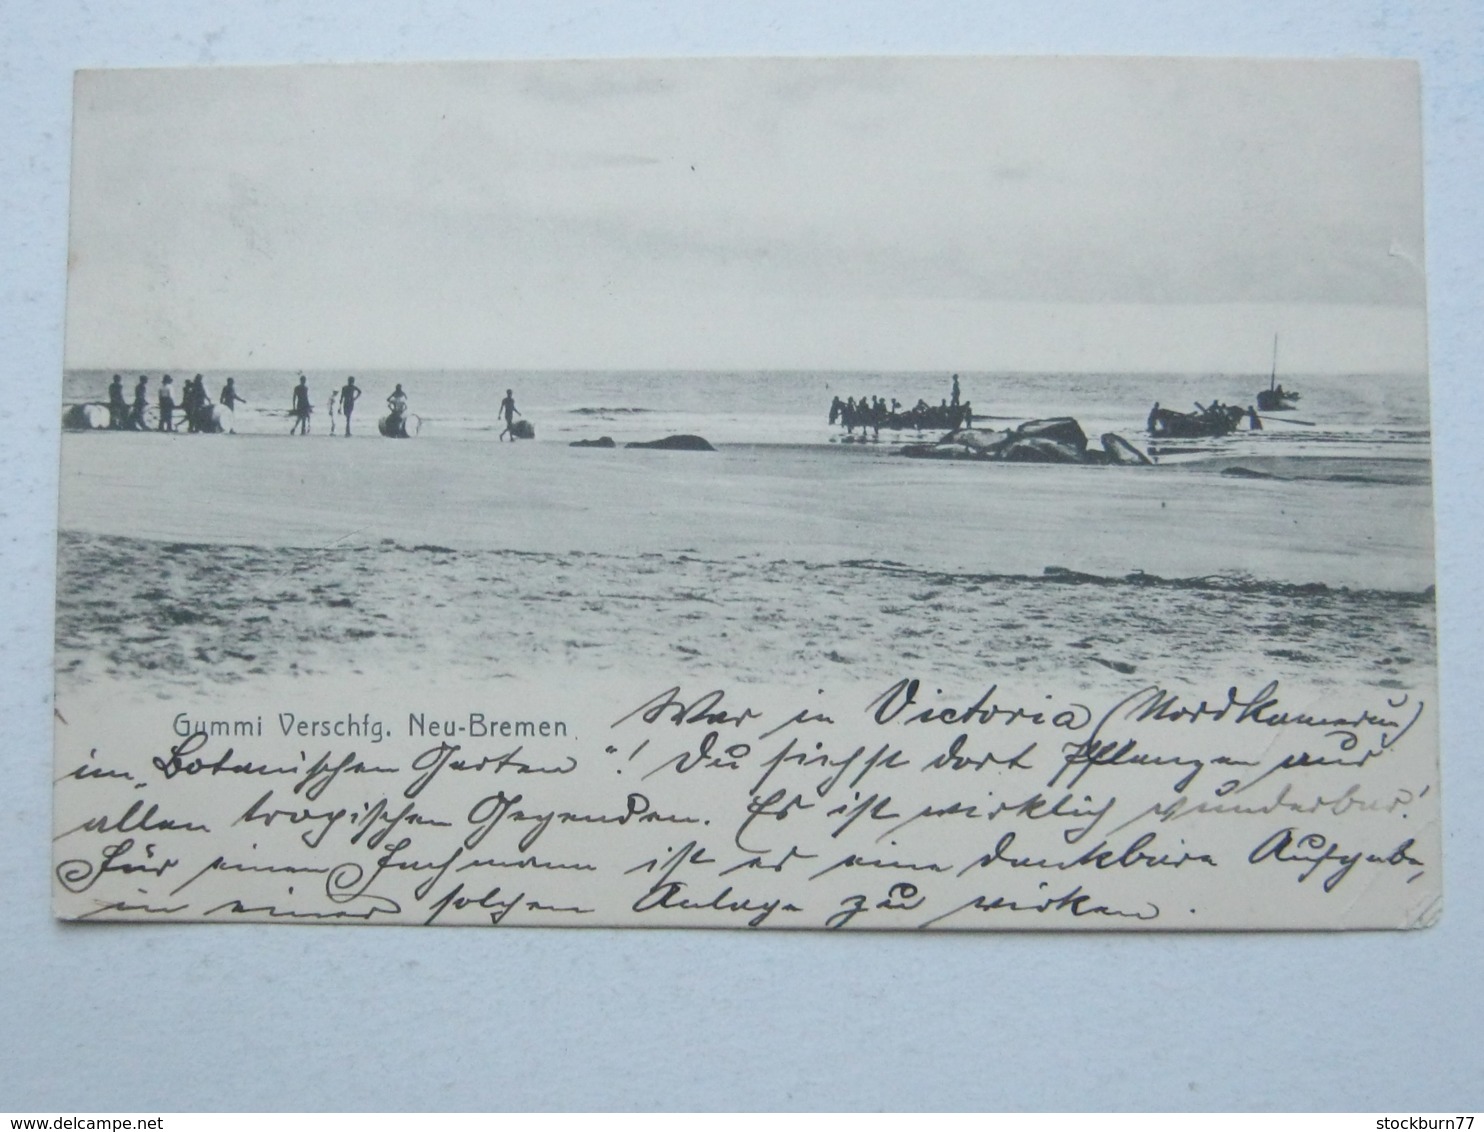 Gummi Verschfg. Neu-Bremen.
War in Victoria (Nordkamerun)
im „Botanischen Garten"! Du siehst dort Pflanzen aus
allen tropischen Gegenden. Es ist wirklich wunderbar!
Für einen Fachmann ist es eine dankbare Aufgabe,
in einer solchen Anlage zu wirken.
stockburn77